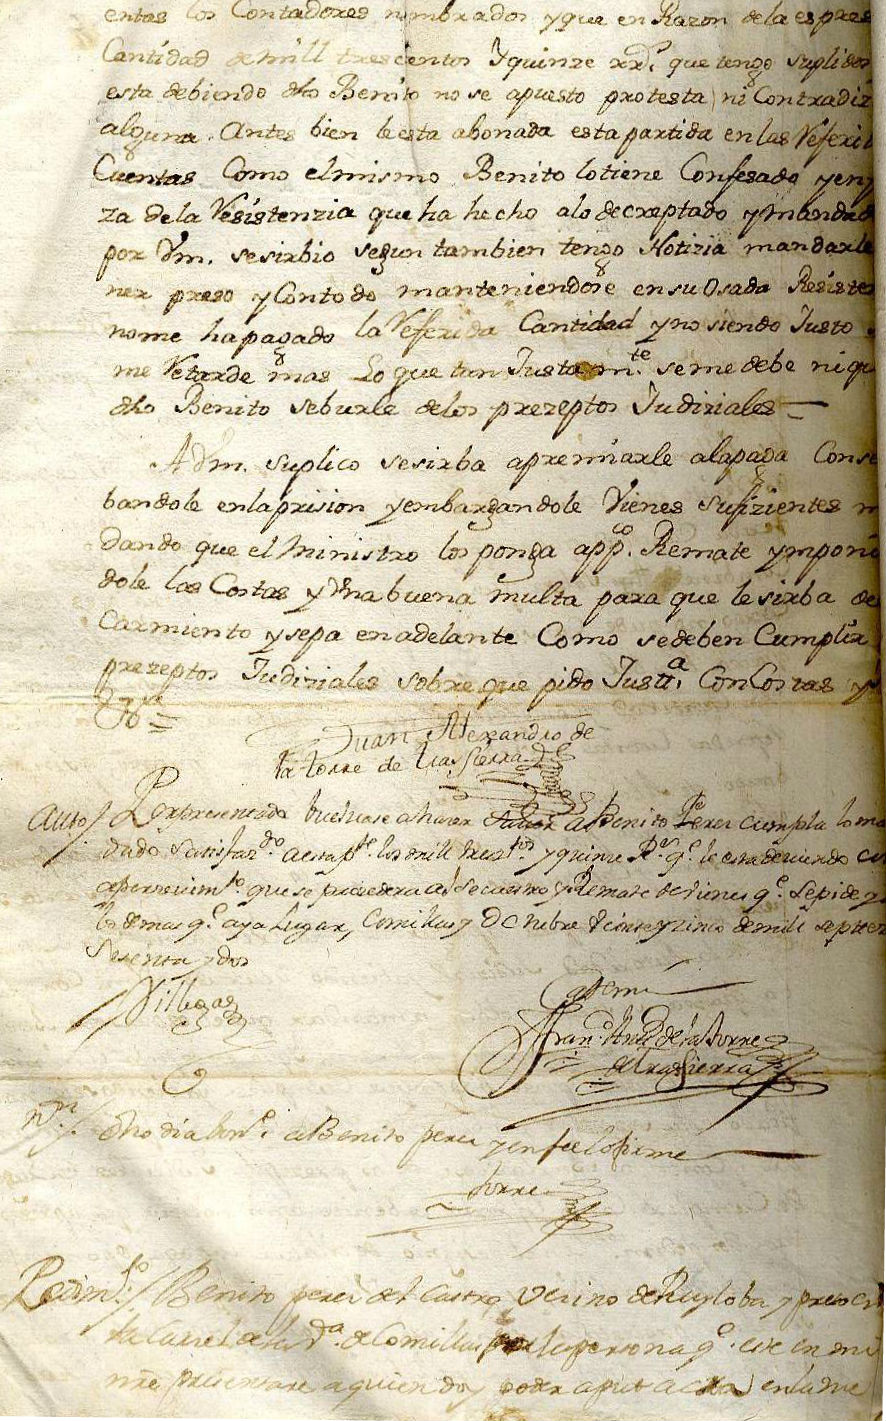 entas los Contadores nombrados y que en Razon de la espres
Cantidad de mill trescentos Y quinze rrs. que tengo suplidos
esta debiendo dho Benito no se apuesto protesta ni Contradiz
alguna. Antes bien le esta abonada esta partida en las Referi
Cuentas Como el mismo Benito lo tiene Confesado y en
za de la Resistenzia que ha hecho a lo decreptado y mandad
por Vm. se sirbio segun tambien tengo Notizia mandarle
ner preso y Con todo manteniendose en su Osada Resisten
no me ha pagado la Referida Cantidad y no siendo Justo
me Retarde mas Lo que tan Justa mte. se me debe ni qu
dho Benito se burle de los prezeptos Judiziales =
A Vm. suplico se sirba apremiarle a la paga Conse
bandole en la prision y embargandole Vienes sufizientes m
dando que el Ministro los ponga a ppco. Remate y mponi
dole las Costas y Vna buena multa para que le sirba de
carmiento y sepa en adelante Como se deben Cumplir
prezeptos Judiziales sobre que pido Justia. Con Costas y
Juan Alexandro de
la torre de tra Sierra
Auto / Por presentado buelbase a hazer saver a Benito Perez cumpla lo ma
dado Satisfazdo. a esta pte. los mill treztos. y quinze Rs. qe. le esta deviendo con
apercevimto. que se procedera al Secuestro y Remate de vienes qe. se pide y
lo demas qe. aya Lugar, Comillas y Octubre veinte y zinco de mill septtez
Sesenta y dos
Villegas
Ante mi
Franco. Anto. de la Torre
de tra Sierra
Non. / dho dia hize. a Benito perez y en fee lo firme
Torre
Pedimto. / Benito perez del Castro Vezino de Ruyloba y preso en
la Carzel de la Va. de Comillas por la persona qe. este en mi
nre presentare a quien doy poder aput acta en la me